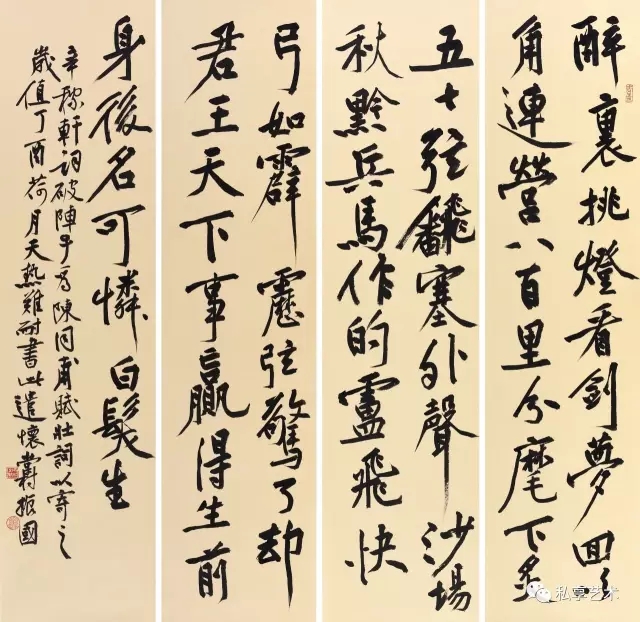 醉裏挑燈看劍夢回吹
角連營八百里分麾下炙
五十弦飜塞外聲沙場
秋點兵馬作的盧飛快
弓如霹靂弦驚了却
君王天下事贏得生前
身後名可憐白髮生
辛稼軒詞破陣子為陳同甫賦壯詞以寄之
歲值丁酉荷月天热難耐書此遣懷竇振國
私享艺术